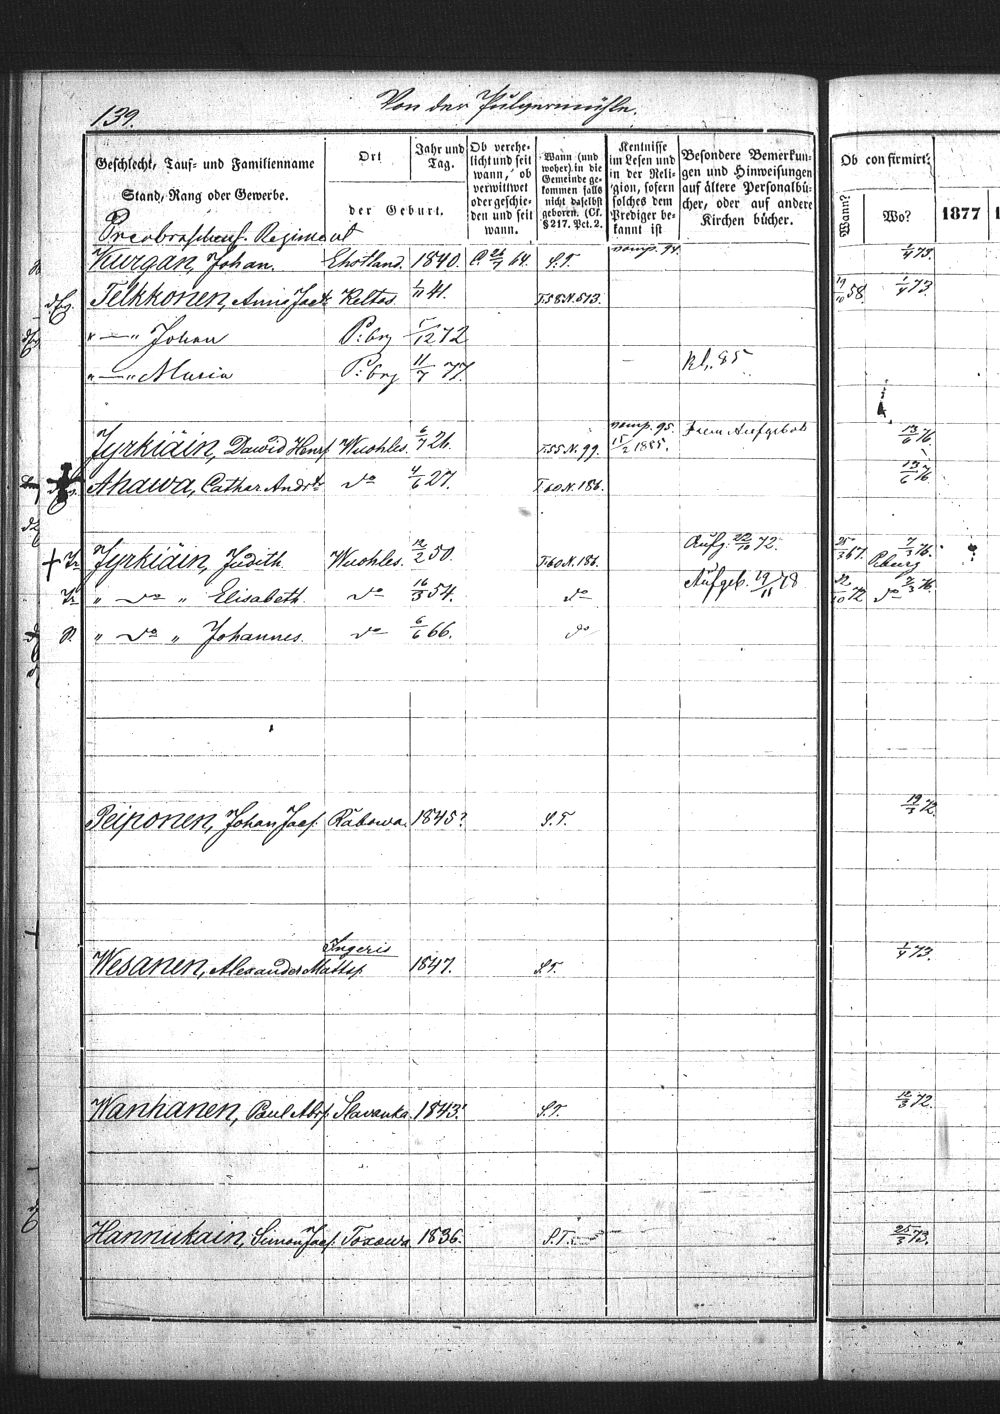 139.
Von der Pulvermühle.
Geschlecht, Tauf- und Familienname Stand, Rang oder Gewerbe. | Ort der Geburt. | Jahr und Tag. | Ob verehe- licht und seit wann, ob verwittwet oder geschie- den und seit wann. | Wann (und woher) in die Gemeinde ge- kommen falls nicht daselbst geboren. (Cf. § 217. Pct. 2. | Kentnisse im Lesen und in der Reli- gion, sofern solches dem Prediger be- kannt ist | Besondere Bemerkun- gen und Hinweisungen auf ältere Personalbü- cher, oder auf andere Kirchen bücher. | Ob confirmirt? Wann? Wo? | 1877
Regiment
Kurgan, Johan. Ehstland. 1840. C. 26/7 64. S.T. 1/4 73.
Teikkonen, Anna Keltos 1/11 41. T.58.N.573. 19/10 58 1/4 73.
" — " Johan P:brg 5/12 72
" — " Maria P:brg 11/7 77. kl. 85
Jyrkiäin, Dawid Henrs Wuohles. 6/7 26. T.55.N.99. 15/2 1855. Aufgebot 13/6 76.
Ahawa, Cathar Andr do 4/6 27. T.60.N.186. 13/6 76
Jyrkiäin, Judith Wuohles. 12/2 50. T.60.N.186. Aufg. 22/10 72. 25/3 67. P.burg 7/3 76.
" do " Elisabeth. do 16/3 54. do Aufgeb. 19/11 78 22/10 72 do 7/3 76.
" do " Johannes. do 6/6 66. do
Peiponen, Johan Jacf. Räbowa. 1845? S.T. 19/3 72.
Ingeris
Wesanen, Alexander Mattsf. 1847. S.T. 1/4 73.
Wanhanen, Paul Abrf. Slavenka. 1843! S.T. 12/3 72.
Hannukain, Simon Jacf. Toxowa 1836. S.T. 25/3 73.